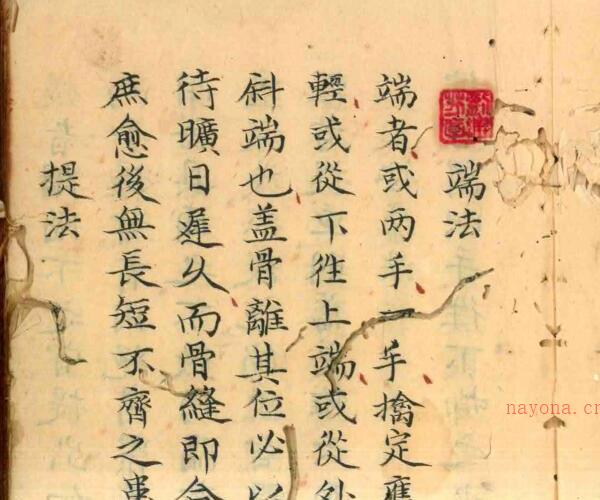 端法
端者或两手一手擒定應
輕或從下徃上端或從外
斜端也盖骨離其位必以
待曠日遲久而骨縫即合
庶愈後無長短不齊之患
提法
nayona.cn